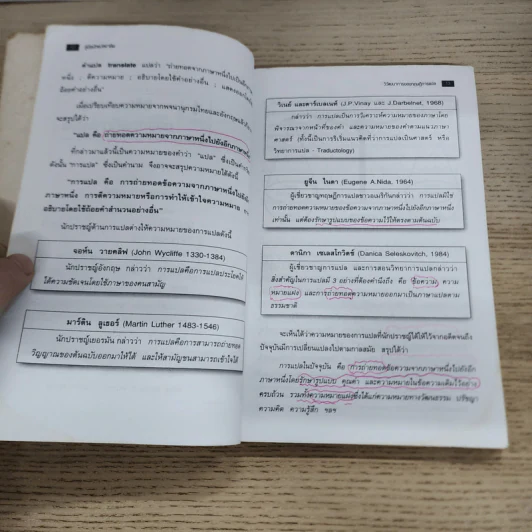 คำแปล translate แปลว่า "ถ่ายทอดจากภาษาหนึ่งไปเป็นอีก
หนึ่ง : ตีความหมาย : อธิบายโดยใช้คำอย่างอื่น : แสดงออก
ถ้อยคำอย่างอื่น"
เมื่อเปรียบเทียบความหมายจากพจนานุกรมไทยและอังกฤษแล้ว
จะสรุปได้ว่า
"แปล คือ ถ่ายทอดความหมายจากภาษาหนึ่งไปยังอีกภาษา
ที่กล่าวมาแล้วนี้เป็นความหมายของคำว่า "แปล" ซึ่งเป็น
ดังนั้น "การแปล" ซึ่งเป็นคำนาม จึงอาจจะสรุปความหมายได้ดังนี้
"การแปล คือ การถ่ายทอดข้อความจากภาษาหนึ่งไปยัง
ภาษาหนึ่ง การตีความหมายหรือการทำให้เข้าใจความหมาย
อธิบายโดยใช้ถ้อยคำสำนวนอย่างอื่น"
นักปราชญ์ด้านการแปลต่างให้ความหมายของการแปลดังนี้
จอห์น วายคลิฟ (John Wycliffe 1330-1384)
นักปราชญ์อังกฤษ กล่าวว่า การแปลคือการแปลประโยค
ได้ความชัดเจนโดยใช้ภาษาของคนสามัญ
มาร์ติน ลูเธอร์ (Martin Luther 1483-1546)
นักปราชญ์เยอรมัน กล่าวว่า การแปลคือการสามารถถ่ายทอด
วิญญาณของต้นฉบับออกมาให้ได้ และให้สามัญชนสามารถเข้าใจได้
วิเนย์ และดาร์เบลเนต์ (J.P.Vinay และ J.Darbelnet, 1968)
กล่าวว่า การแปลเป็นการวิเคราะห์ความหมายของภาษาโดย
พิจารณาจากหน้าที่ของคำ และความหมายของคำตามแนวภาษา
ศาสตร์ (ทั้งนี้เป็นการเริ่มแนวคิดที่ว่าการแปลเป็นศาสตร์ หรือ
วิทยาการแปล - Traductology)
ยูจีน ไนดา (Eugene A.Nida, 1964)
ผู้เชี่ยวชาญทฤษฎีการแปลชาวอเมริกันกล่าวว่า การแปลมิใช่
การถ่ายทอดความหมายของข้อความจากภาษาหนึ่งไปยังอีกภาษาหนึ่ง
เท่านั้น แต่ต้องรักษารูปแบบของข้อความไว้ให้ตรงตามต้นฉบับ
ดานิกา เซเลสโกวิตช์ (Danica Seleskovitch, 1984)
ผู้เชี่ยวชาญการแปล และการสอนวิทยาการแปลกล่าวว่า
สิ่งสำคัญในการแปลมี 3 อย่างที่ต้องคำนึงถึง คือ ข้อความ ความ
หมายแฝง และการถ่ายทอดความหมายออกมาเป็นภาษาแปลตาม
ธรรมชาติ
จะเห็นได้ว่าความหมายของการแปลที่นักปราชญ์ได้ให้ไว้จากอดีตจนถึง
ปัจจุบันมีการเปลี่ยนแปลงไปตามกาลสมัย สรุปได้ว่า
การแปลในปัจจุบัน คือ การถ่ายทอดข้อความจากภาษาหนึ่งไปยังอีก
ภาษาหนึ่งโดยรักษารูปแบบ คุณค่า และความหมายในข้อความเดิมไว้อย่าง
ครบถ้วน รวมทั้งความหมายแฝงซึ่งได้แก่ความหมายทางวัฒนธรรม ปรัชญา
ความคิด ความรู้สึก ฯลฯ